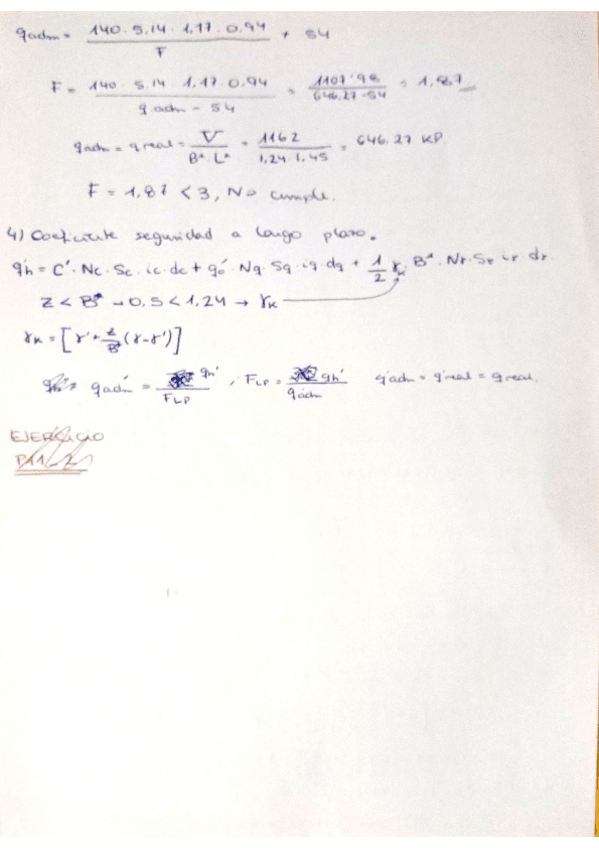 qadm = 140 · 5,14 · 1,17 · 0,94 / F + 54
F = 140 · 5,14 · 1,17 · 0,94 / qadm - 54 = 1107'98 / 646,27 - 54 = 1,87
qadm = qreal = V / B* · L* = 1162 / 1,24 · 1,45 = 646.27 KP
F = 1,87 < 3, No cumple.
4) Coeficiente seguridad a largo plazo.
q'h = C' · Nc · Sc · ic · dc + q'o · Nq · Sq · iq · dq + 1/2 γk · B* · Nr · Sr · ir · dr
Z < B* → 0,5 < 1,24 → γk
γk = [γ' + z/B* (γ - γ')]
q'adm = qh' / FLP , FLP = qh' / q'adm q'adm = q'real = qreal.
EJERCICIO